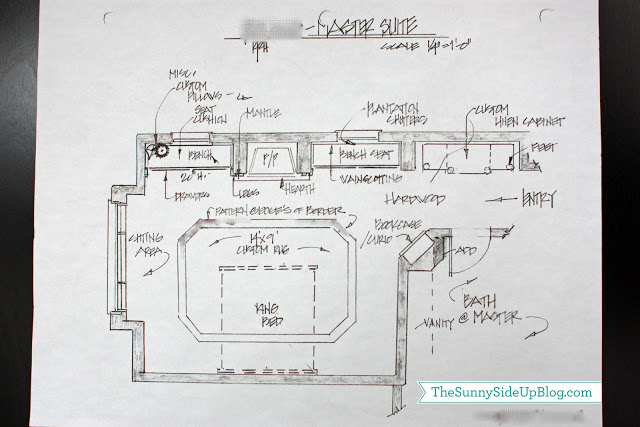 - MASTER SUITE
SCALE 1/4"=1'-0"
MISC.
CUSTOM
PILLOWS
SEAT
CUSHION
MANTLE
PLANTATION
SHUTTERS
CUSTOM
LINEN CABINET
FEET
BENCH
F/P
BENCH SEAT
20" H.
DRAWERS
LEGS
HEARTH
WAINSCOTTING
HARDWOOD
ENTRY
BORDER
BOOKCASE
/CURIO
SITTING
AREA
14' x 9'
CUSTOM RUG
ADD
KING
BED
BATH
VANITY @ MASTER
TheSunnySideUpBlog.com